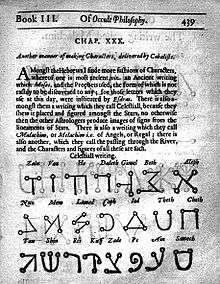 Book III. Of Occult Philosophy. 439
CHAP. XXX.
Another manner of making Characters, delivered by Cabalists.
AMongst the Hebrews I finde more fashions of Characters,
whereof one is most ancient, viz. an ancient writing
which Moses, and the Prophets used, the form of which is not
rashly to be discovered to any; for those letters which they
use at this day, were instituted by Esdras. There is also a-
mongst them a writing which they call Celestiall, because they
shew it placed and figured amongst the Stars, no otherwise
then the other Astrologers produce images of signs from the
lineaments of Stars. There is also a writing which they call
Malachim, or Melachim i.e. of Angels, or Regal; there is
also another, which they call the passing through the River,
and the Characters and figures of all these are such.
Celestiall writing.
Zain Vau He Daleth Gimel Beth Aleph
Nun Mem Lamed Caph Iod Theth Cheth
Tau Shin Res Kuff Zade Pe Ain Samech